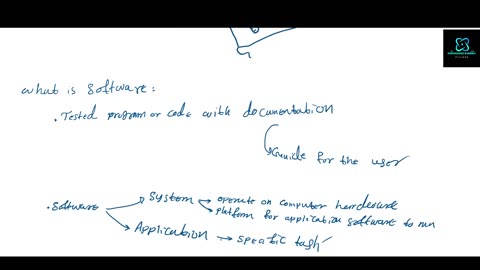 What is software:
• Tested program or code with documentation
Guide for the user
• Software
System → operate on computer hardware
→ platform for application software to run
Application → specific task